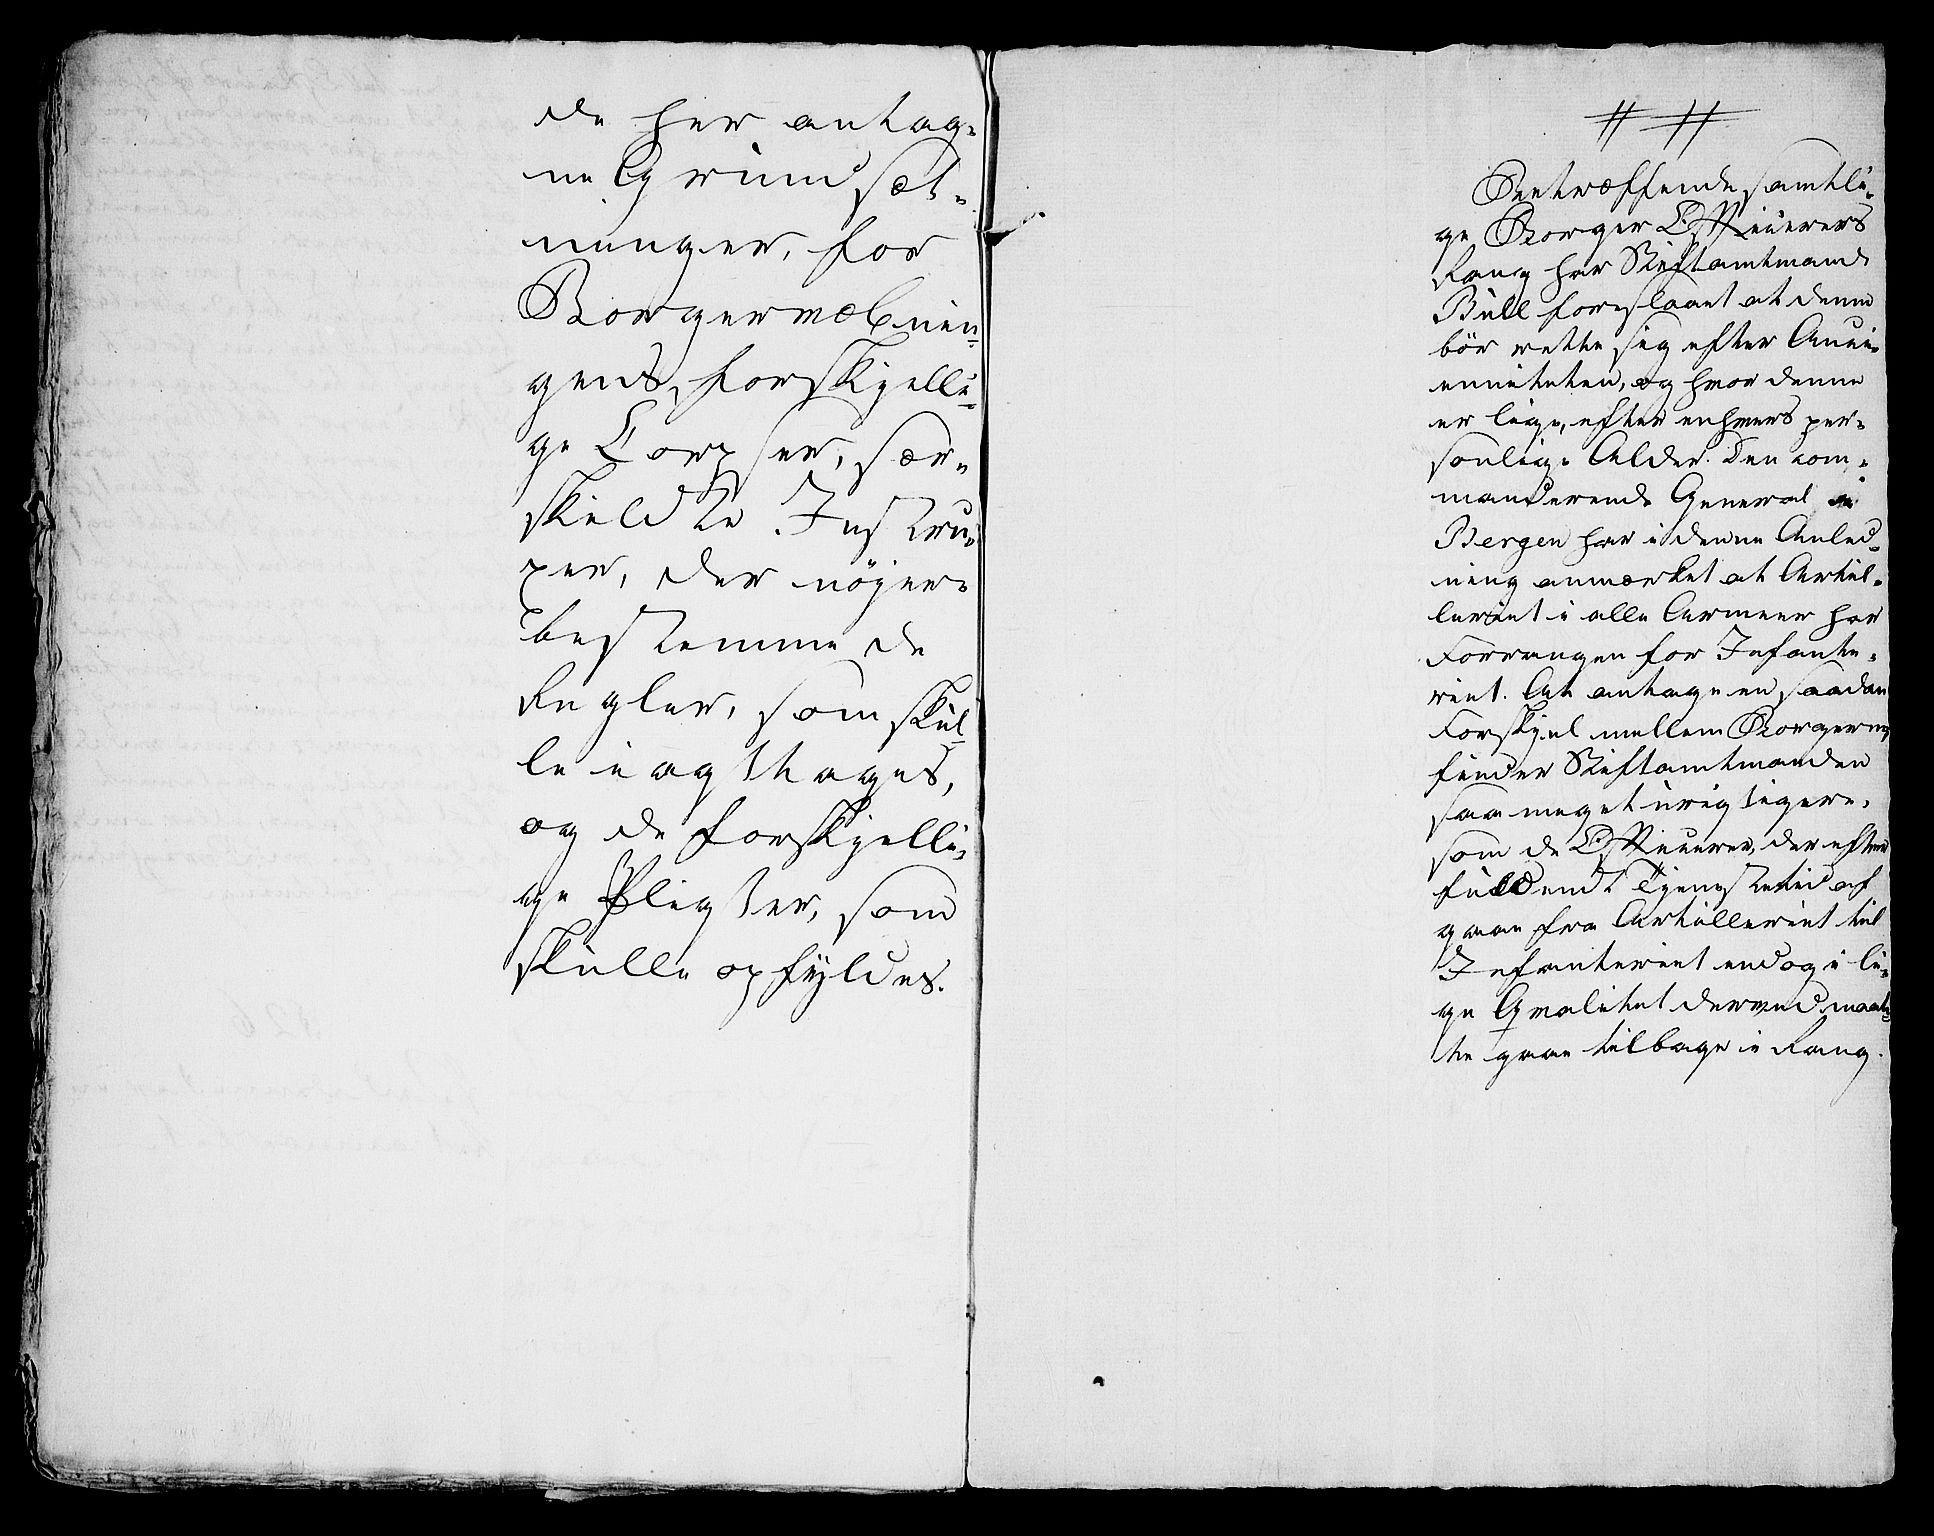 de her antag-
ne Grund sæt-
ninger, for
Borgervæbnin-
gens forskjelli-
ge Corpser, sær-
skieldte Instru-
xer, der nöjere
bestemme de
Regler, som skul-
le iagttages,
og de forskjelli-
ge Pligter, som
skulle opfyldes.
# #
Betræffende samtli-
ge Borger Officierers
Rang har Stiftamtmand
Bull foreslaaet at denne
bör rette sig efter Anci-
enniteten, og hvor denne
er lige, efter enhvers per-
sonlige Alder. Den com-
manderende General i
Bergen har i denne Anled-
ning anmærket at Artil-
leriet i alle Armeer har
Forrangen for Infante-
riet. At antage en saadan
Forskjel mellem Borgerne
finder Stiftamtmanden
saa meget urigtigere,
som de Officierer, der efter
fuldendt Tjenstetid af
gaae fra Artilleriet til
Infanteriet endog i li-
ge Qvalitet derved maat-
te gaae tilbage i Rang.